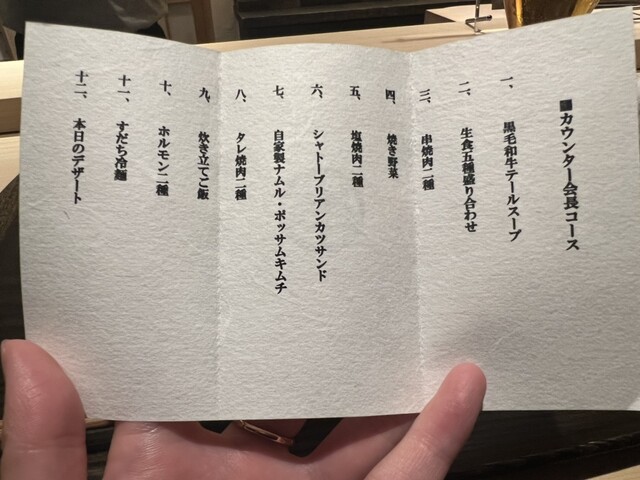 ■カウンター会長コース
一、黒毛和牛テールスープ
二、生食五種盛り合わせ
三、串焼肉二種
四、焼き野菜
五、塩焼肉二種
六、シャトーブリアンカツサンド
七、自家製ナムル・ポッサムキムチ
八、タレ焼肉二種
九、炊き立てご飯
十、ホルモン二種
十一、すだち冷麺
十二、本日のデザート